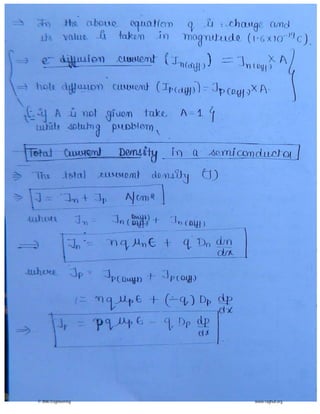 ⇒ In the above equation q is : charge and
its value is taken in magnitude (1.6×10⁻¹⁹ C).
⇒ e⁻ diffusion current (In(diff)) = Jn(diff) × A
⇒ hole diffusion current (Ip(diff)) = Jp(diff) × A.
if A is not given take A=1
while solving problem,
Total Current Density in a semiconductor
⇒ The total current density (J)
⇒ J = Jn + Jp A/cm²
where Jn = Jn(drift) + Jn(diff)
⇒ Jn = nqμnE + qDn dn/dx
where Jp = Jp(drift) + Jp(diff)
= nqμpE + (-q) Dp dp/dx
⇒ Jp = pqμpE - qDp dp/dx